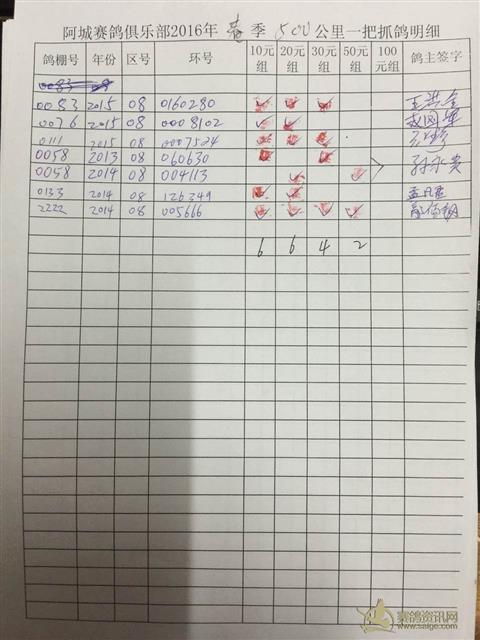 阿城赛鸽俱乐部2016年 春 季 500 公里一把抓鸽明细
鸽棚号 年份 区号 环号 10元组 20元组 30元组 50元组 100元组 鸽主签字
0083
0083 2015 08 0160280 王洪全
0076 2015 08 0008102
0111 2015 08 0007524
0058 2013 08 060630 孙永贵
0058 2014 08 004113
0133 2014 08 126349
2222 2014 08 005666
6 6 4 2
赛鸽资讯网
www.saige.com